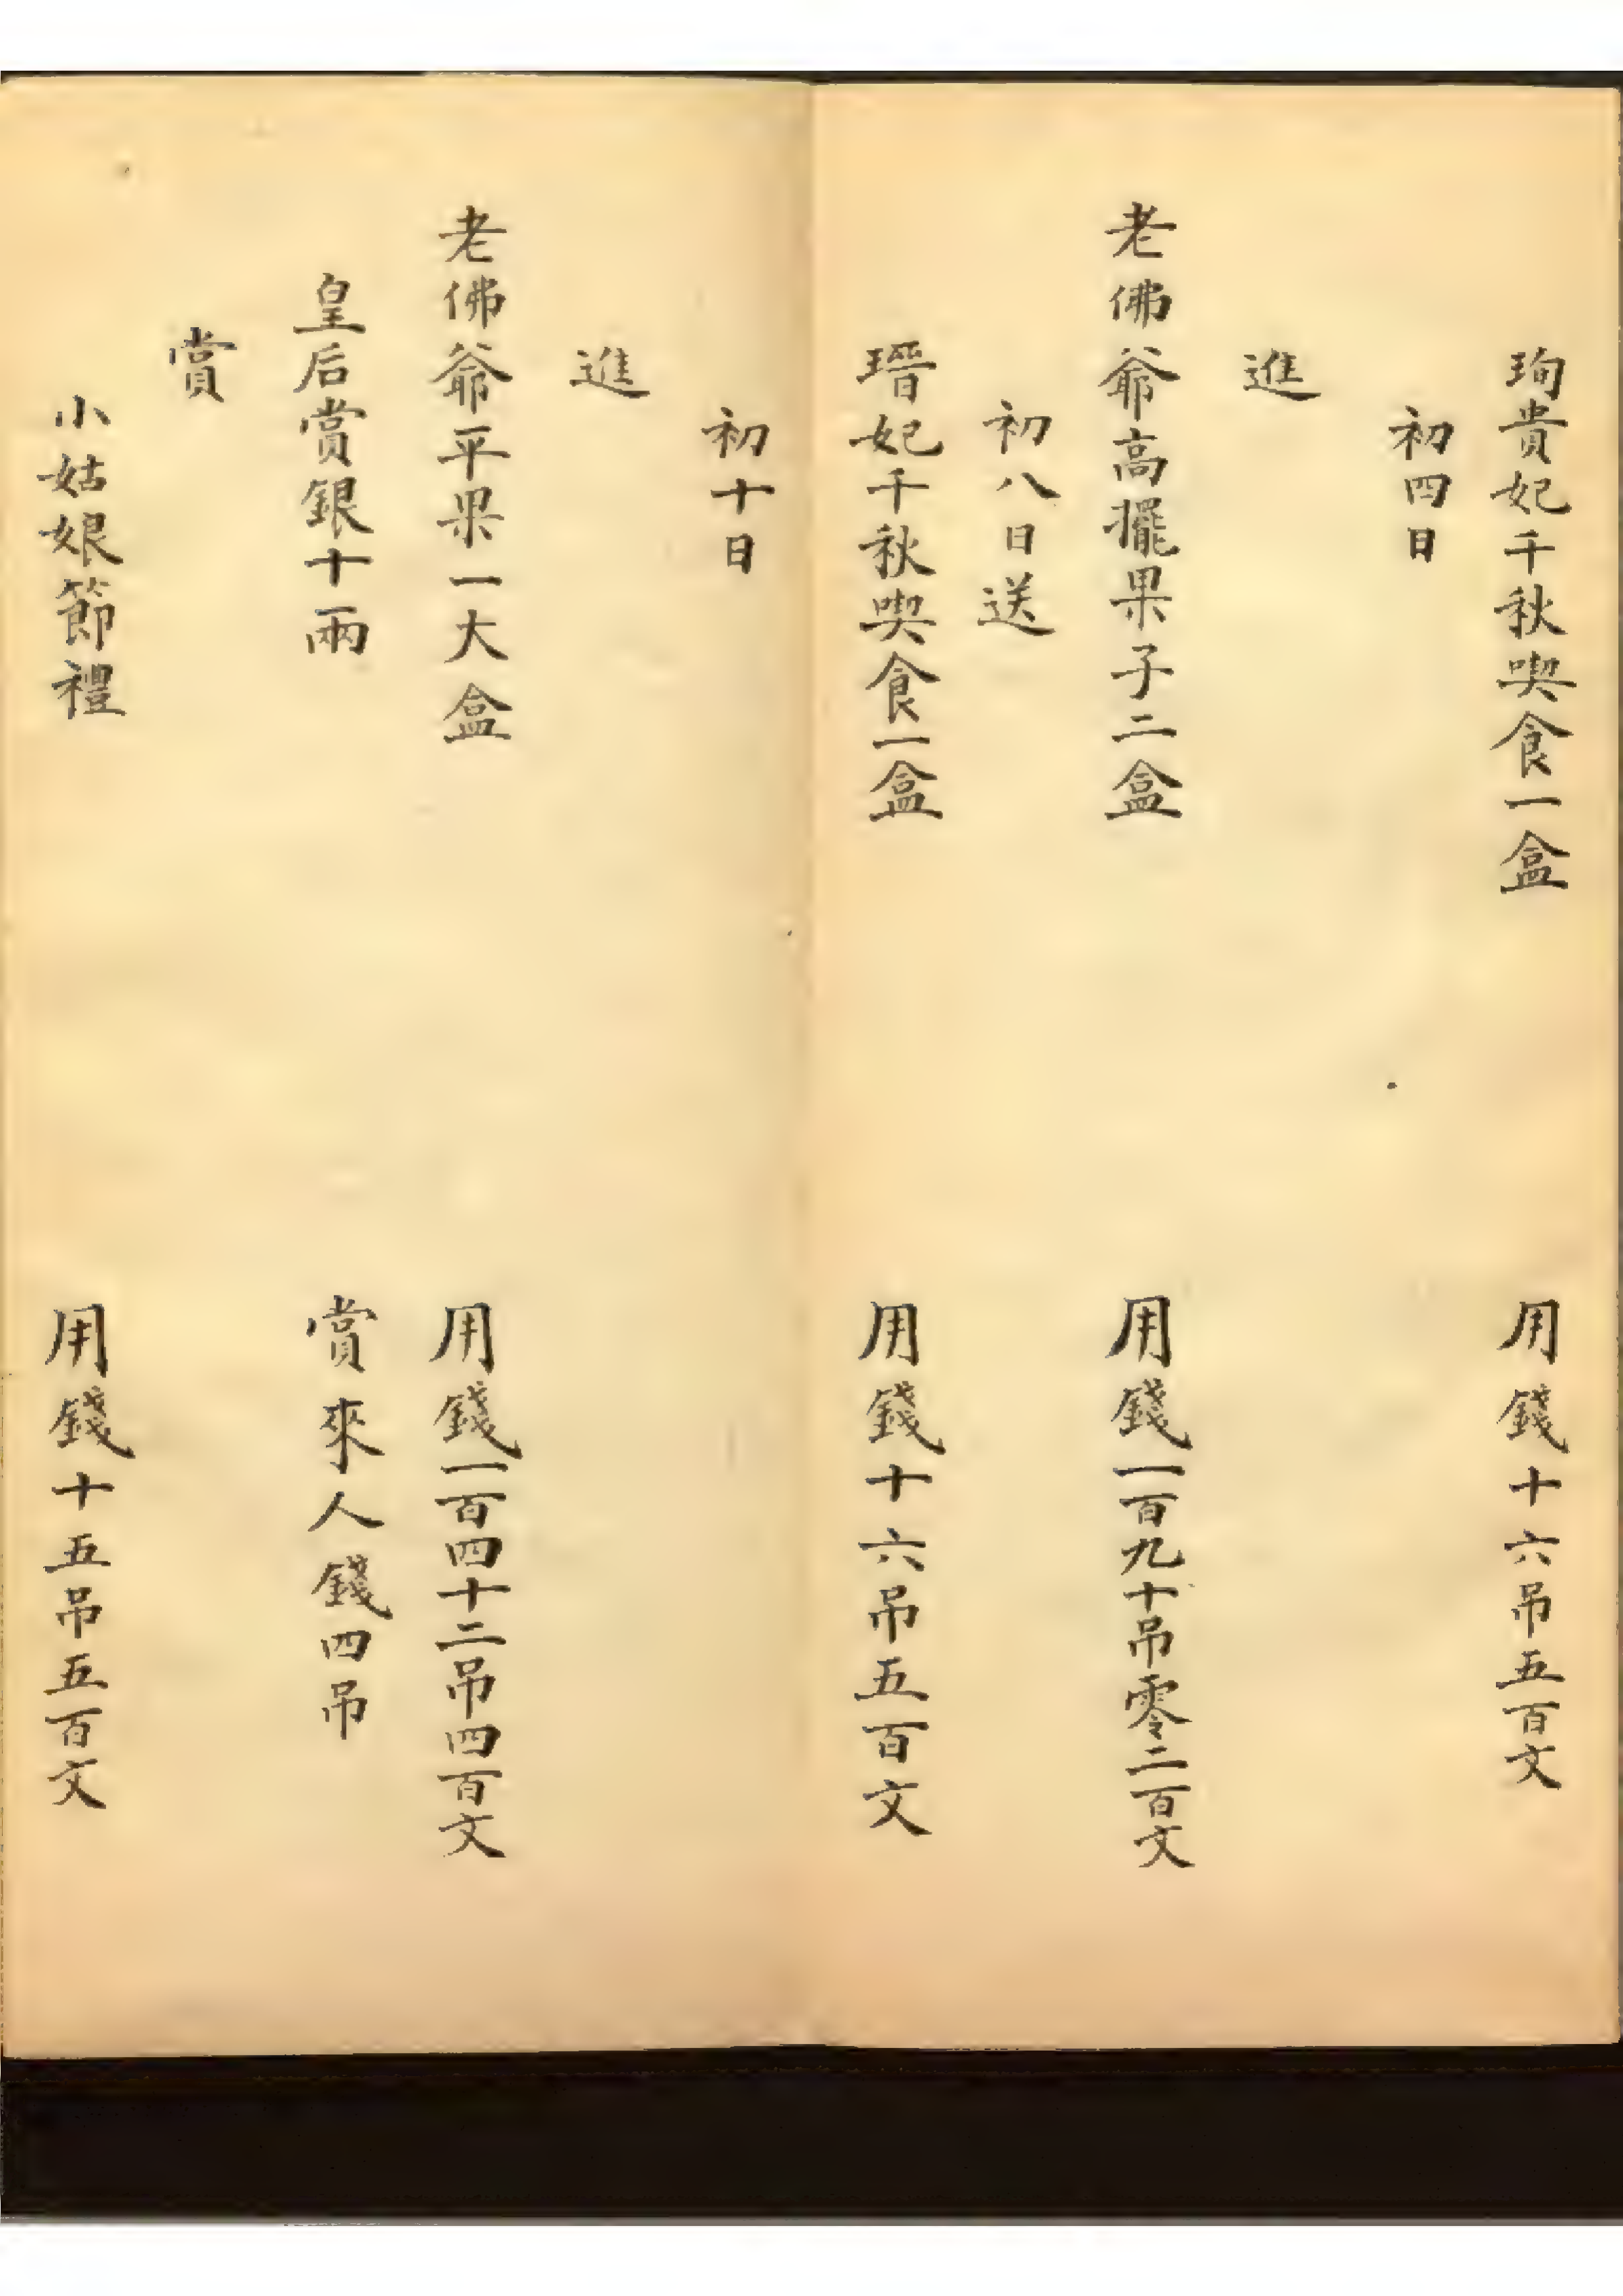 珣貴妃千秋喫食一盒 用錢十六吊五百文
初四日
進
老佛爺高擺果子二盒 用錢一百九十吊零二百文
初八日送
瑨妃千秋喫食一盒 用錢十六吊五百文
初十日
進
老佛爺平果一大盒 用錢一百四十二吊四百文
皇后賞銀十兩 賞來人錢四吊
賞
小姑娘節禮 用錢十五吊五百文